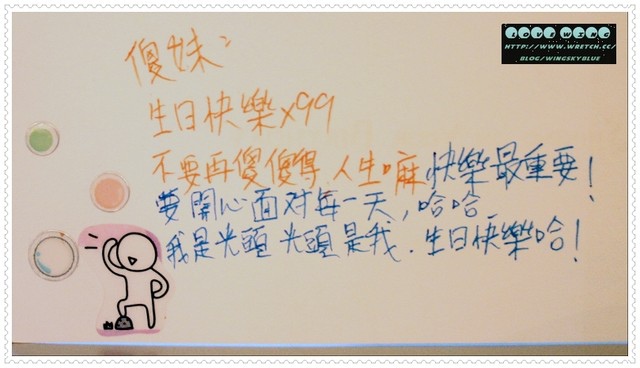 傻妹：
生日快樂x99
不要再傻傻得,人生嘛快樂最重要!
要開心面对每一天,哈哈
我是光頭 光頭是我.生日快樂哈!
HTTP://WWW.WRETCH.CC/
BLOG/WINGSKYBLUE